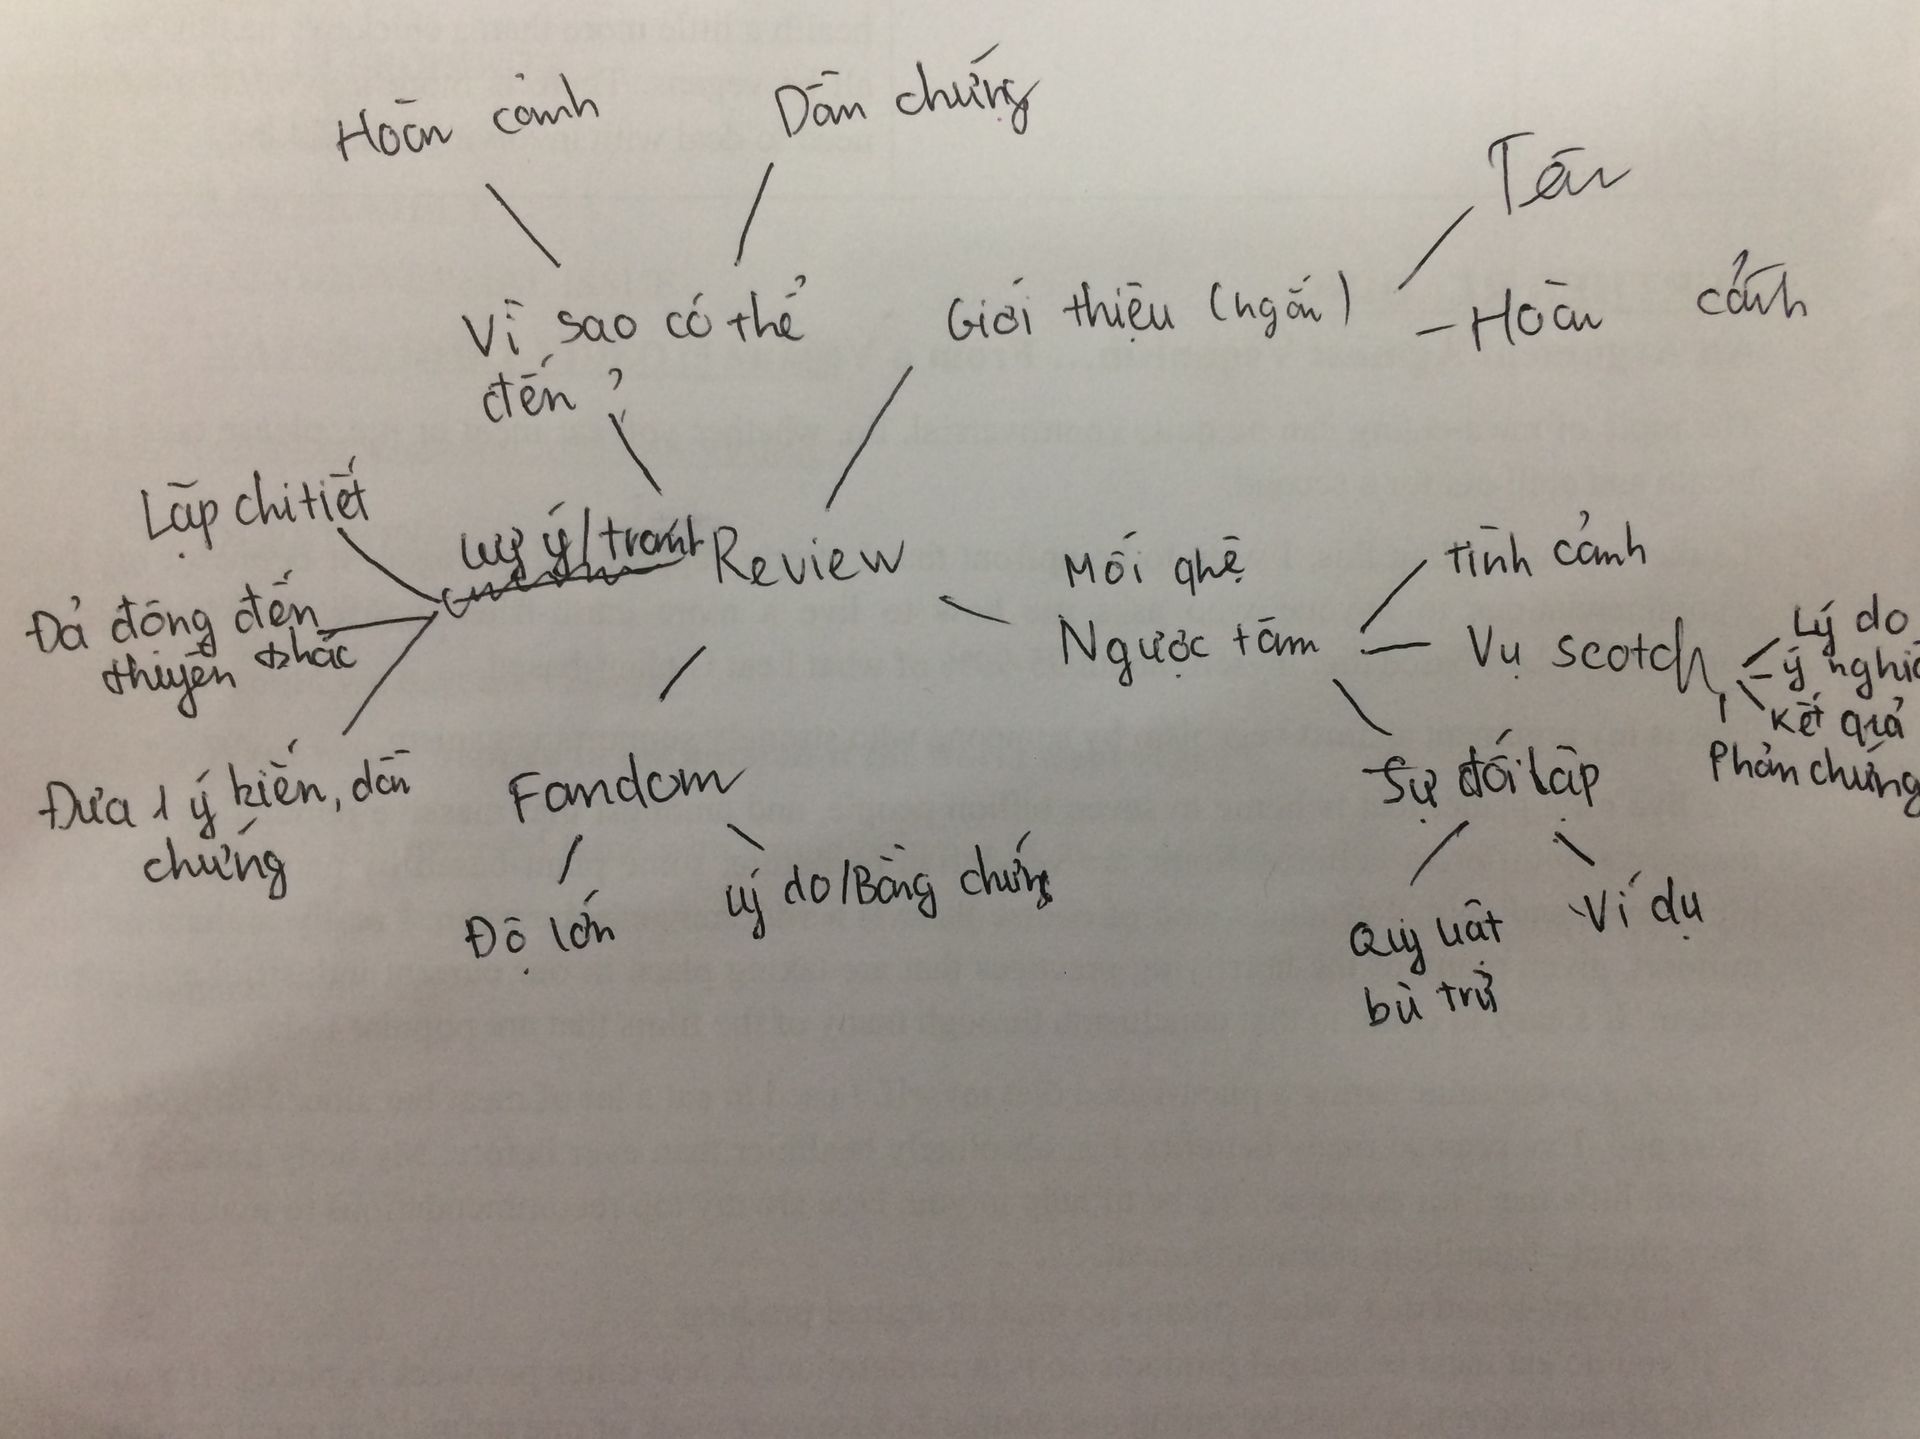 Hoàn cảnh
Dẫn chứng
Tên
Vì sao có thể
đến?
Giới thiệu (ngắn)
Hoàn cảnh
Lặp chi tiết
Lưu ý/tránh
Review
Đả động đến
thuyền khác
Đưa 1 ý kiến, dẫn
chứng
Mối qhệ
Ngược tâm
tình cảnh
Vụ scotch
Lý do
ý nghĩa
Kết quả
Phản chứng
Sự đối lập
Quy luật
bù trừ
Ví dụ
Fandom
Độ lớn
Lý do/Bằng chứng